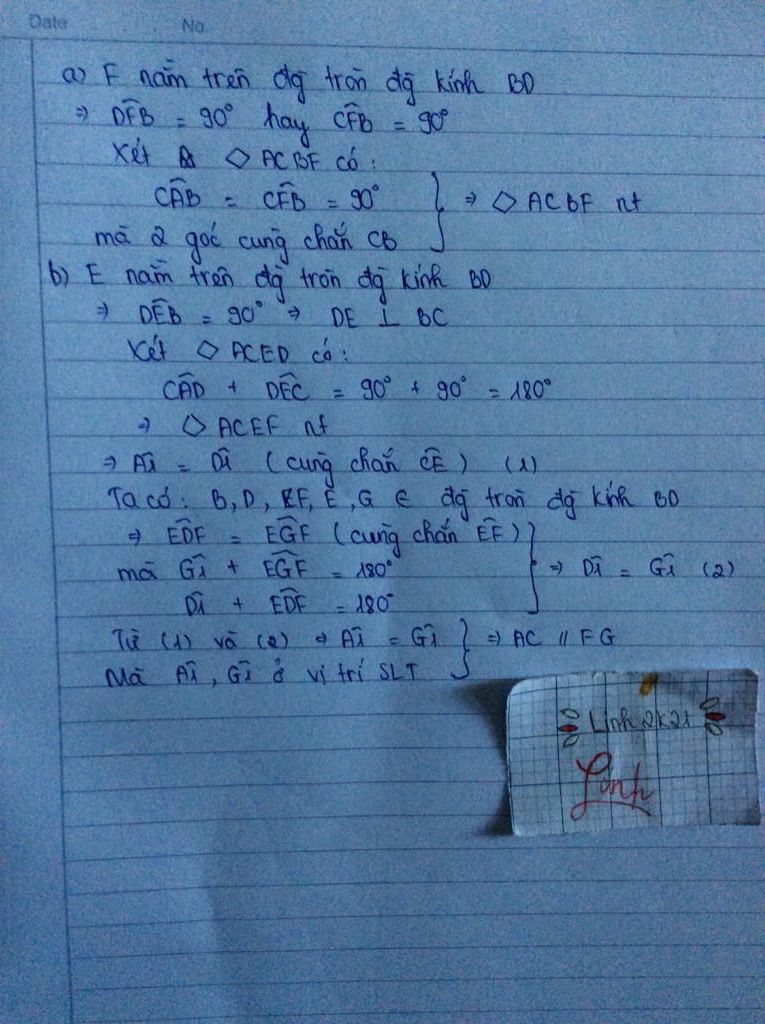 Date No
a) F nằm trên đg tròn đg kính BD
⇒ DF̂B = 90° hay CF̂B = 90°
Xét ◇ ACBF có:
CÂB = CF̂B = 90°
mà 2 góc cùng chắn CB } ⇒ ◇ ACBF nt
b) E nằm trên đg tròn đg kính BD
⇒ DÊB = 90° ⇒ DE ⊥ BC
Xét ◇ ACED có:
CÂD + DÊC = 90° + 90° = 180°
⇒ ◇ ACEF nt
⇒ Â1 = D̂1 (cùng chắn CE) (1)
Ta có: B, D, F, E, G ∈ đg tròn đg kính BD
⇒ ED̂F = EĜF (cùng chắn EF)
mà Ĝ1 + EĜF = 180° } ⇒ D̂1 = Ĝ1 (2)
D̂1 + ED̂F = 180°
Từ (1) và (2) ⇒ Â1 = Ĝ1 } ⇒ AC // FG
Mà Â1, Ĝ1 ở vị trí SLT
Linh 2k21
Linh